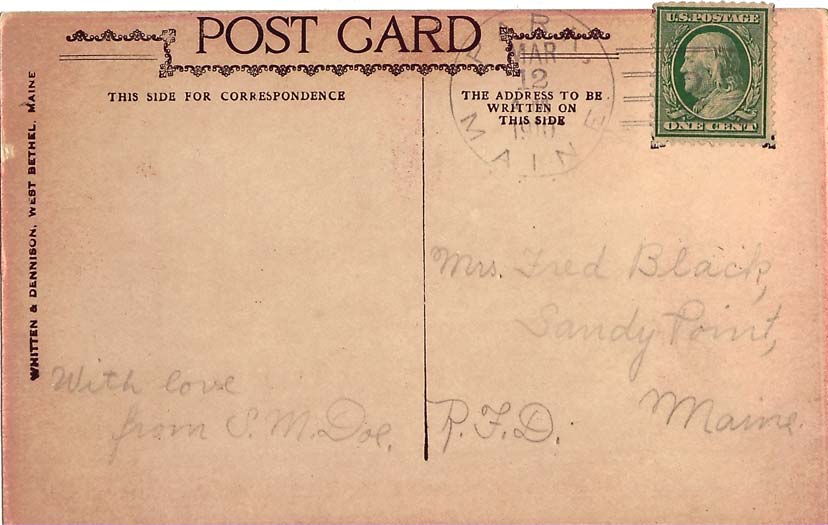 POST CARD
THIS SIDE FOR CORRESPONDENCE
THE ADDRESS TO BE
WRITTEN ON
THIS SIDE
MAR
12
1910
MAINE
U.S. POSTAGE
ONE CENT
WHITTEN & DENNISON, WEST BETHEL, MAINE
Mrs. Fred Black,
Sandy Point,
Maine.
R.F.D.
With love
from S. M. Doe.